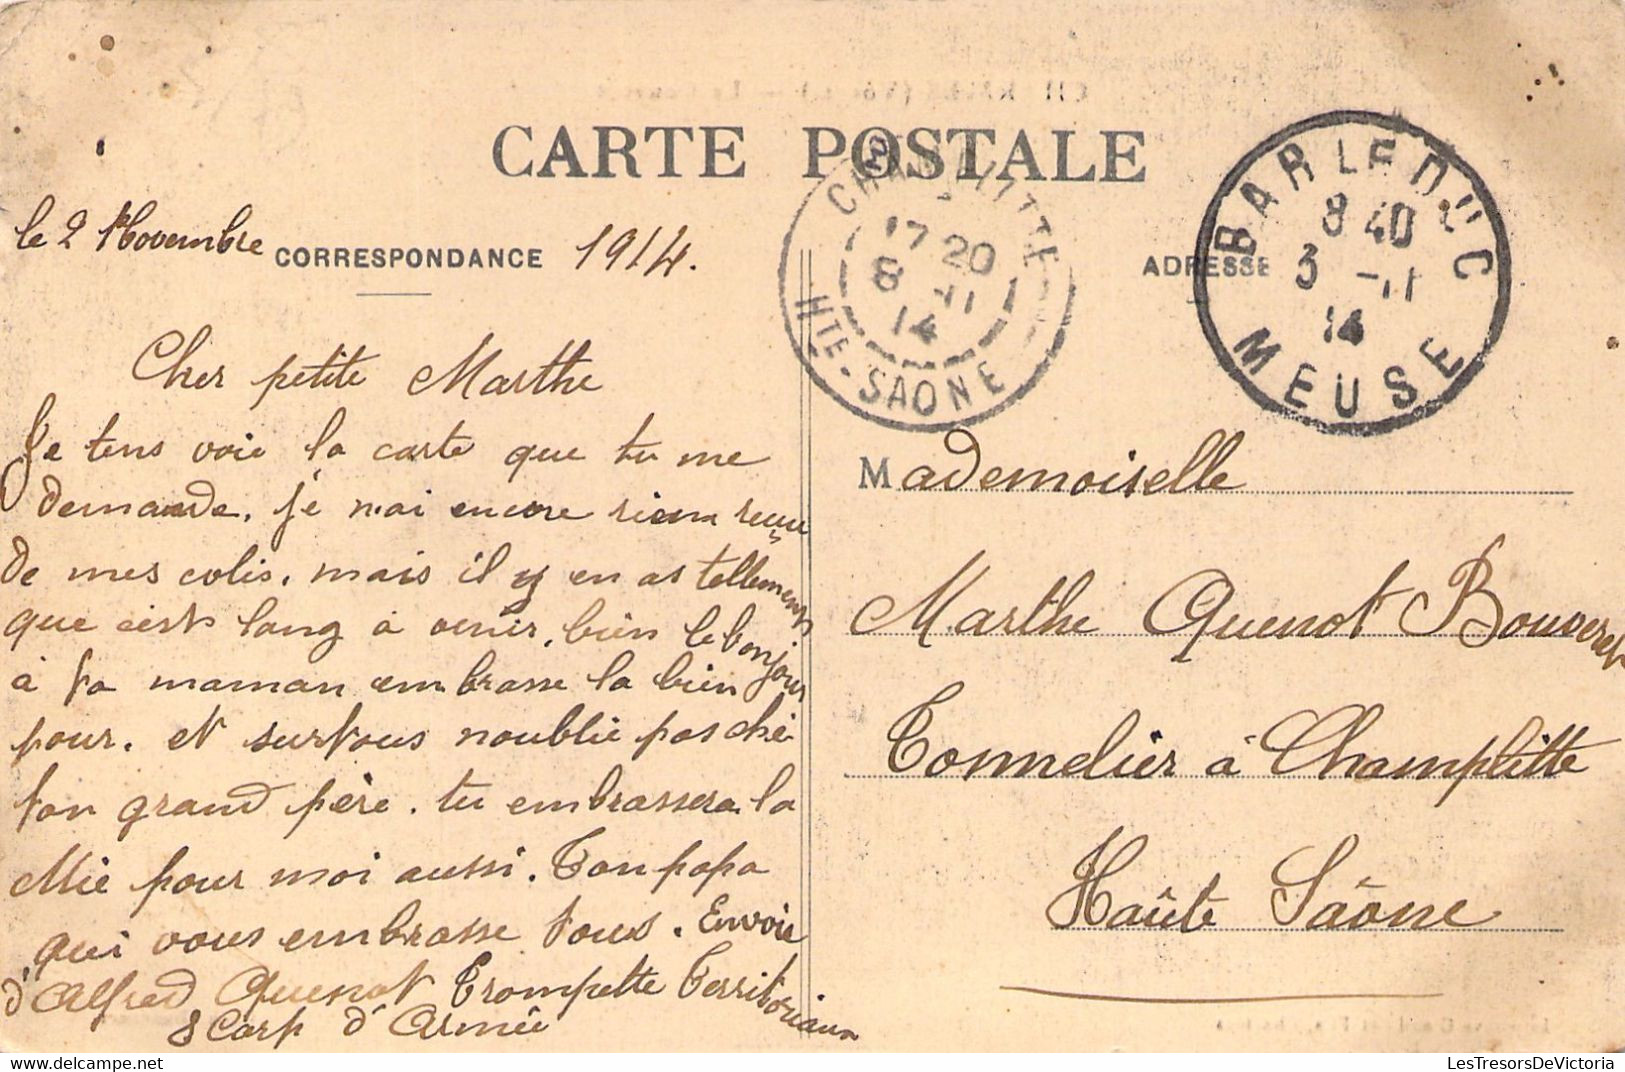 CARTE POSTALE
le 2 Novembre 1914.
CORRESPONDANCE
ADRESSE
CHAMPLITTE
17 20
8 -11
14
HTE-SAONE
BAR LE DUC
8 40
3 -11
14
MEUSE
Cher petite Marthe
Je tens voie la carte que tu me
demande. je n'ai encore rien reçu
de mes colis. mais il y en as tellement
que c'est lang à venir. bien le bonjour
à ta maman embrasse la bien
pour. et surtous noublie pas ché
ton grand père. tu embrassera la
Mie pour moi aussi. Ton papa
qui vous embrasse tous. Envoie
d'Alfred Quenot Trompette Territoriaux
8 Corp d'Armée
Mademoiselle
Marthe Quenot Bouveret
Tonnelier à Champlitte
Haûte Sâone
LesTresorsDeVictoria.com